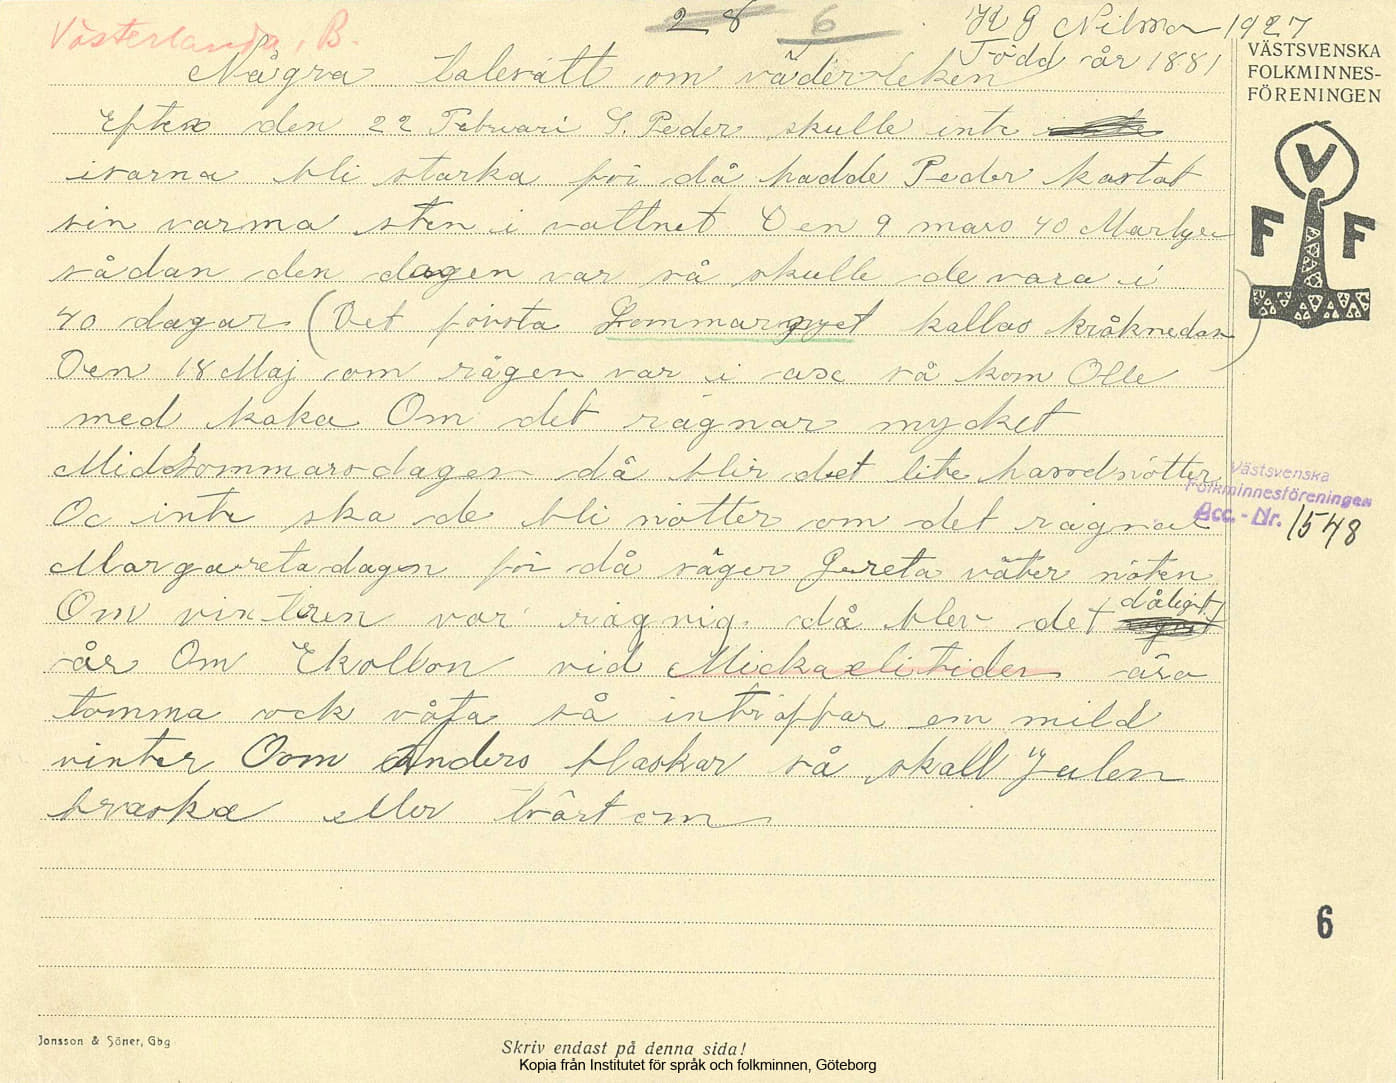 Västerlanda, B.
28 6
K G Nilson 1927
Född år 1881
VÄSTSVENSKA
FOLKMINNES-
FÖRENINGEN
V
F F
Några talesätt om väderleken
Efter den 22 Februari S. Peder skulle inte
isarna bli starka för då hadde Peder kastat
sin varma sten i vattnet Den 9 mars 40 Martyrer
sådan den dagen var så skulle de vara i
40 dagar (Det första Sommarnyet kallas kråknedan
Den 18 Maj om rågen var i ax så kom Olle
med kaka Om det rägnar mycket
Midsommarsdagen då blir det lite hasselnötter
Oc inte ska de bli nötter om det rägnar
Margaretadagen för då säger Greta väter nöten
Om vintren var rägnig då blev det dåligt
år Om Ekollon vid Mickaelitiden äro
tomma ock våta så inträffar en mild
vinter Oom Anders blaskar så skall Julen
braska eller tvärt om
Västsvenska
Folkminnesföreningen
Acc.-Nr. 1548
6
Jonsson & Söner, Gbg
Skriv endast på denna sida!
Kopia från Institutet för språk och folkminnen, Göteborg